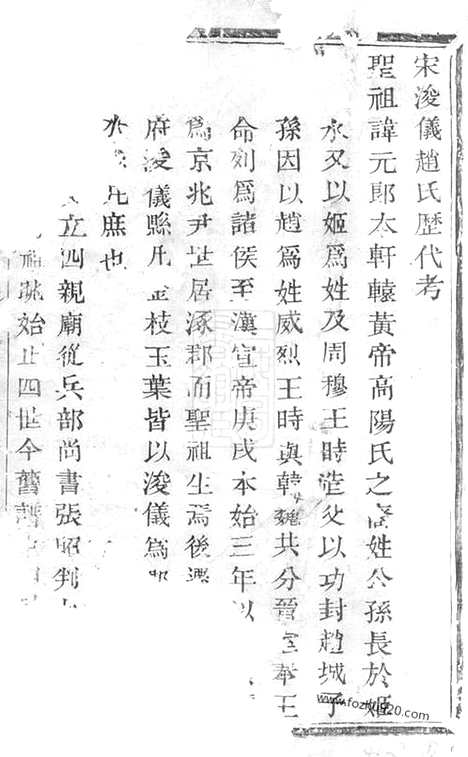 宋浚儀趙氏歷代考
聖祖諱元郎本軒轅黃帝高陽氏之裔姓公孫長於姬
水又以姬爲姓及周穆王時造父以功封趙城子
孫因以趙爲姓威烈王時與韓魏共分晉室奉王
命列爲諸侯至漢宣帝庚戌本始三年以
爲京兆尹世居涿郡而聖祖生焉後遷
府浚儀縣凡金枝玉葉皆以浚儀爲郡
水 此庶也
立四親廟從兵部尚書張昭判
祖 始止四世今舊